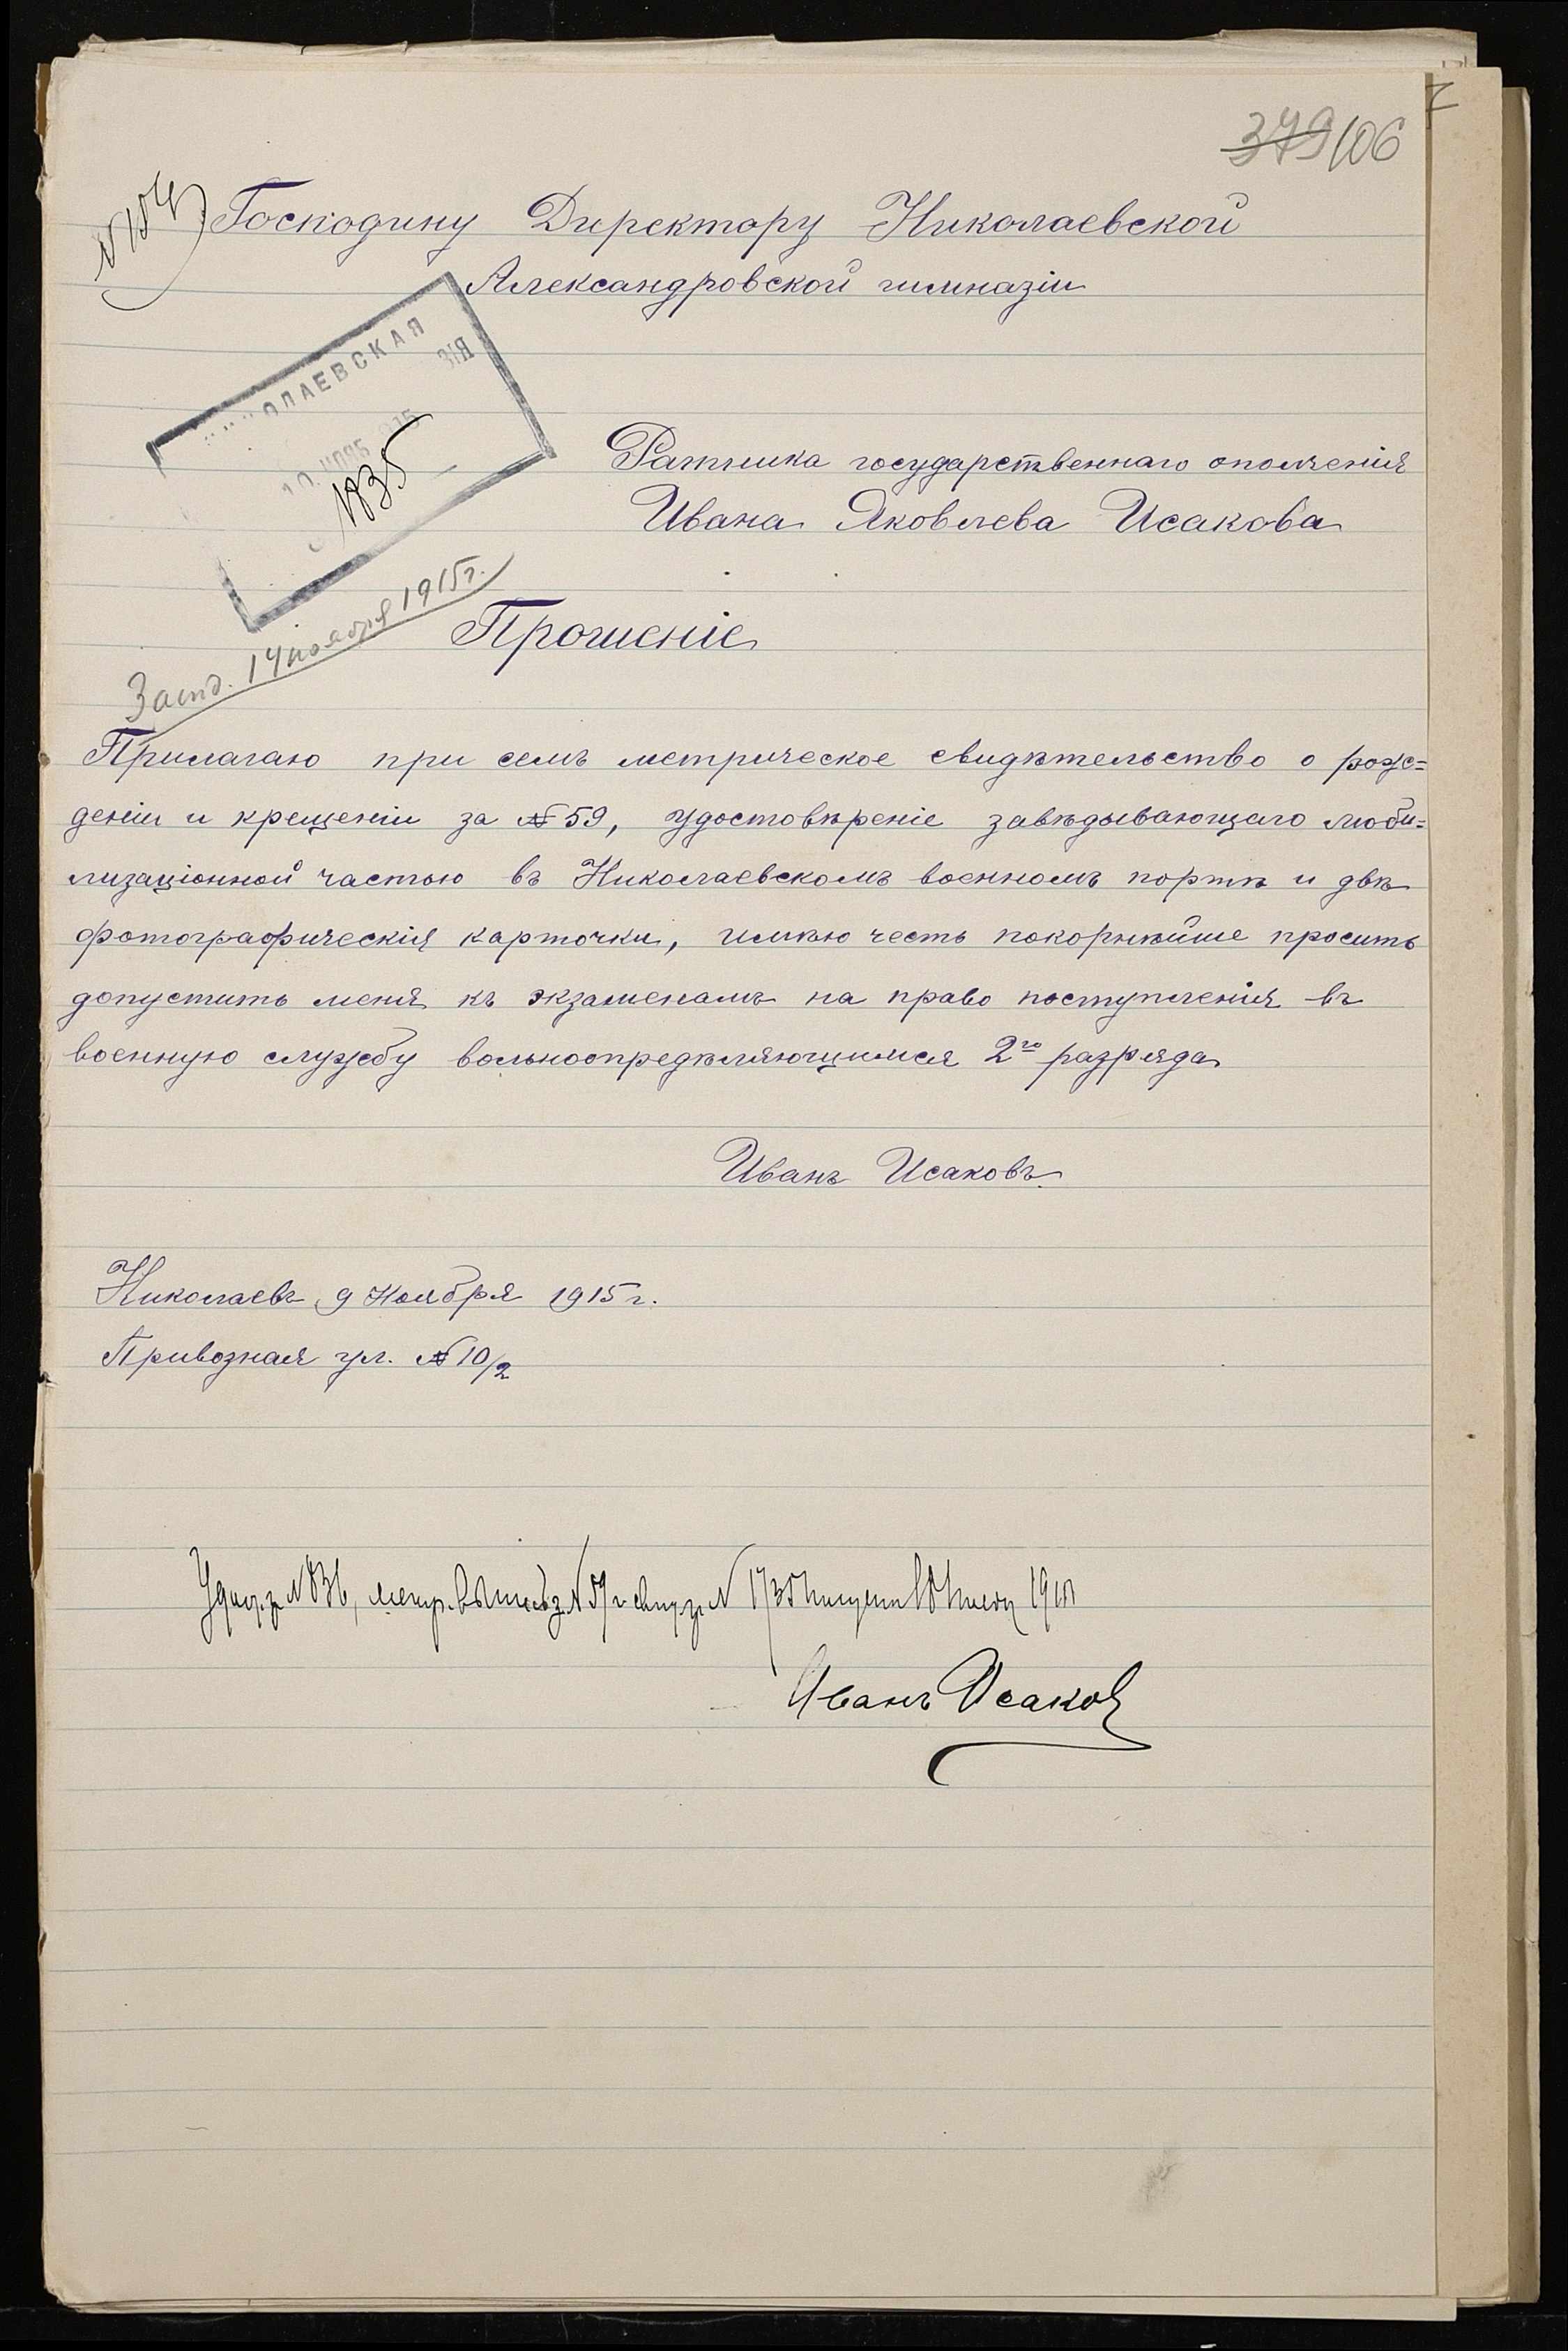 379 106
Господину Директору Николаевской
Александровской гимназіи
НИКОЛАЕВСКАЯ
ЗІЯ
1835
Ратника государственнаго ополченія
Ивана Яковлева Исакова
14 ноября 1915 г.
Прошеніе
Прилагаю при семъ метрическое свидѣтельство о рож=
деніи и крещеніи за № 59, удостовѣреніе завѣдывающаго моби=
лизаціонной частью въ Николаевскомъ военномъ портѣ и двѣ
фотографическія карточки, имѣю честь покорнѣйше просить
допустить меня къ экзаменамъ на право поступленія въ
военную службу вольноопредѣляющимся 2го разряда
Иванъ Исаковъ.
Николаевъ 9 Ноября 1915 г.
Привозная ул. № 10/2
Иванъ Исаков